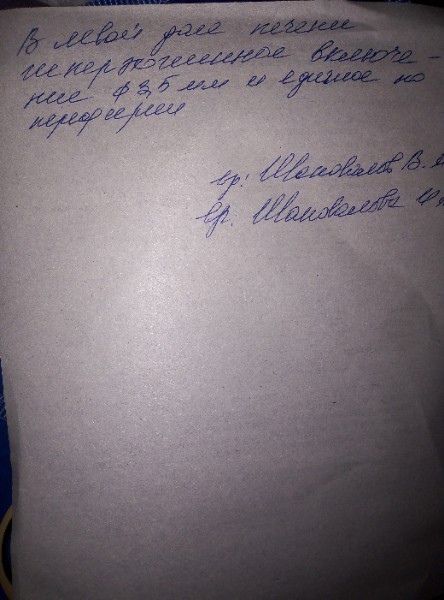 В левой доле печени
гиперэхогенное включе-
ние ϕ 3,5 мм и единое по
периферии
вр: Шаповалов В.
вр. Шаповалова